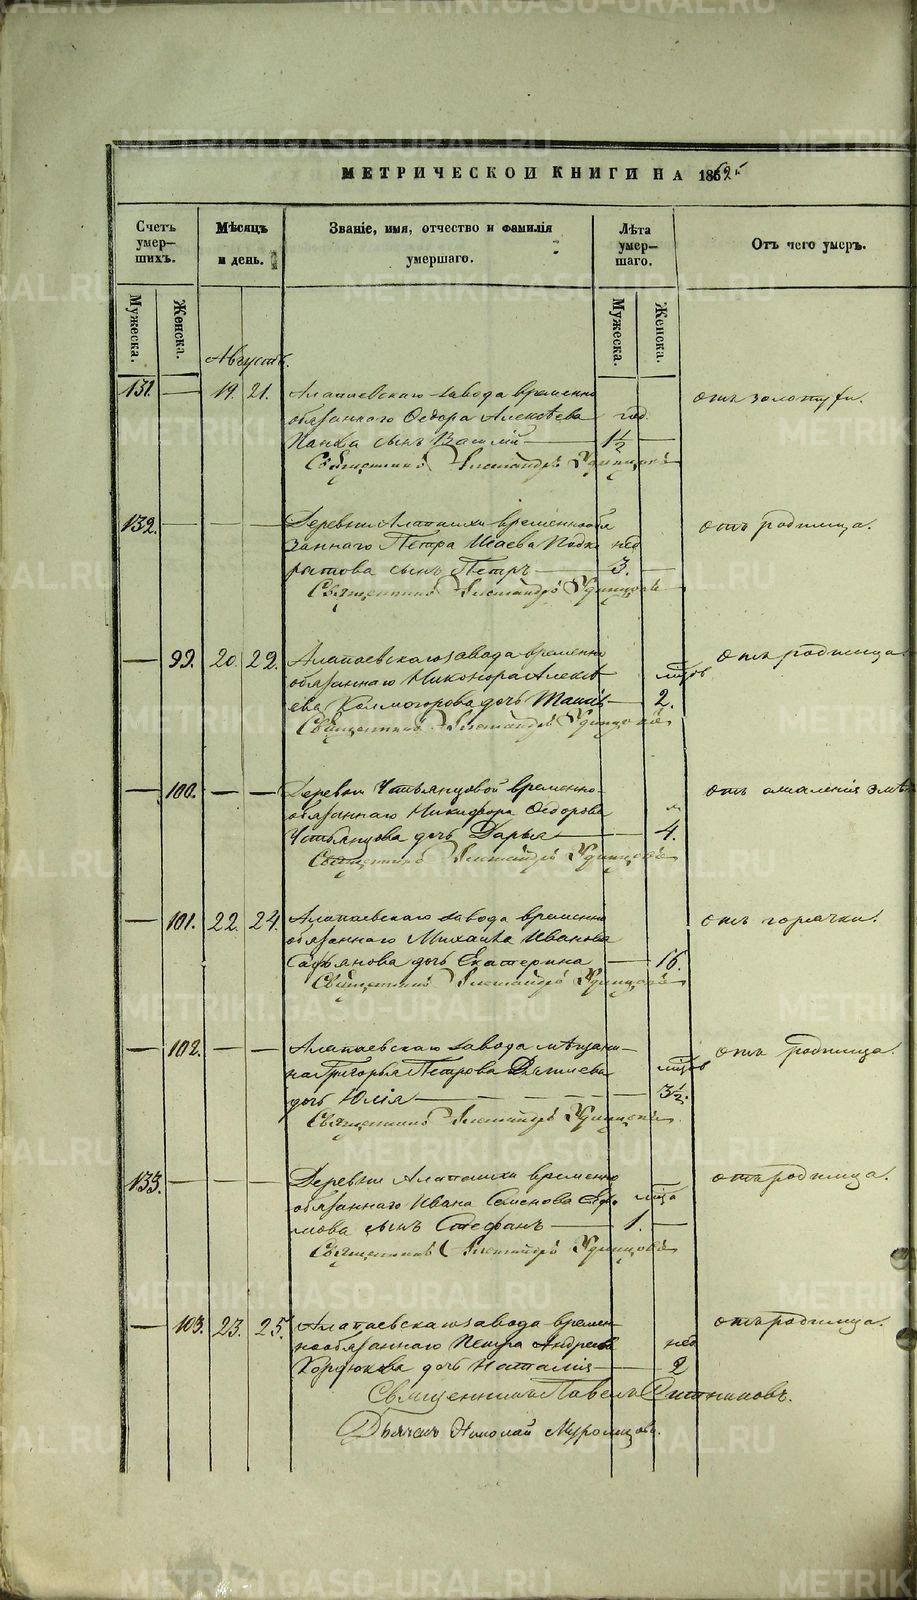 МЕТРИЧЕСКОЙ КНИГИ НА 18
Счетъ умер-шихъ.
Мѣсяцъ и день.
Званіе, имя, отчество и фамилія умершаго.
Лѣта умер-шаго.
Отъ чего умеръ.
Мужеска.
Женска.
Мужеска.
Женска.
Августъ.
131. — 19. 21. Алапаевскаго завода временно отъ золотухи.
обязаннаго Ѳедора Алексѣева год.
сынъ Василій — 1½ —
Священникъ Александръ Удинцовъ
132. — — — Деревни Алапаихи временнообя отъ родимца.
заннаго Петра Исаева Подко нед
рытова сынъ Петръ — 3. —
Священникъ Александръ Удинцовъ
— 99. 20. 22. Алапаевскаго завода временно отъ родимца
обязаннаго Никонора Алексѣ мѣсяцов
ева Колмогорова дочь — 2.
Священникъ Александръ Удинцовъ
— 100. — — Деревни Устьянцовой временно
обязаннаго Никифора Ѳедорова
Устьянцова дочь Дарья — 4.
Священникъ Александръ Удинцовъ
— 101. 22. 24. Алапаевскаго завода временно отъ горячки.
обязаннаго Михаила Иванова
Сафьянова дочь Екатерина — 16.
Священникъ Александръ Удинцовъ
— 102. — — Алапаевскаго завода мѣщани- отъ родимца.
на Григорья Петрова
дочь Юлія — 3½.
Священникъ Александръ Удинцовъ
133. — — — Деревни Алапаихи временно отъ родимца.
обязаннаго Ивана Семенова Ефи
мова сынъ Стефанъ — 1. —
Священникъ Александръ Удинцовъ
— 103. 23. 25. Алапаевскаго завода времен- отъ родимца.
нообязаннаго Петра Андреева нед
дочь Наталія — 2
Священникъ Павелъ Ситниковъ.
Дьячекъ Николай Муромцовъ.
METRIKI.GASO-URAL.RU